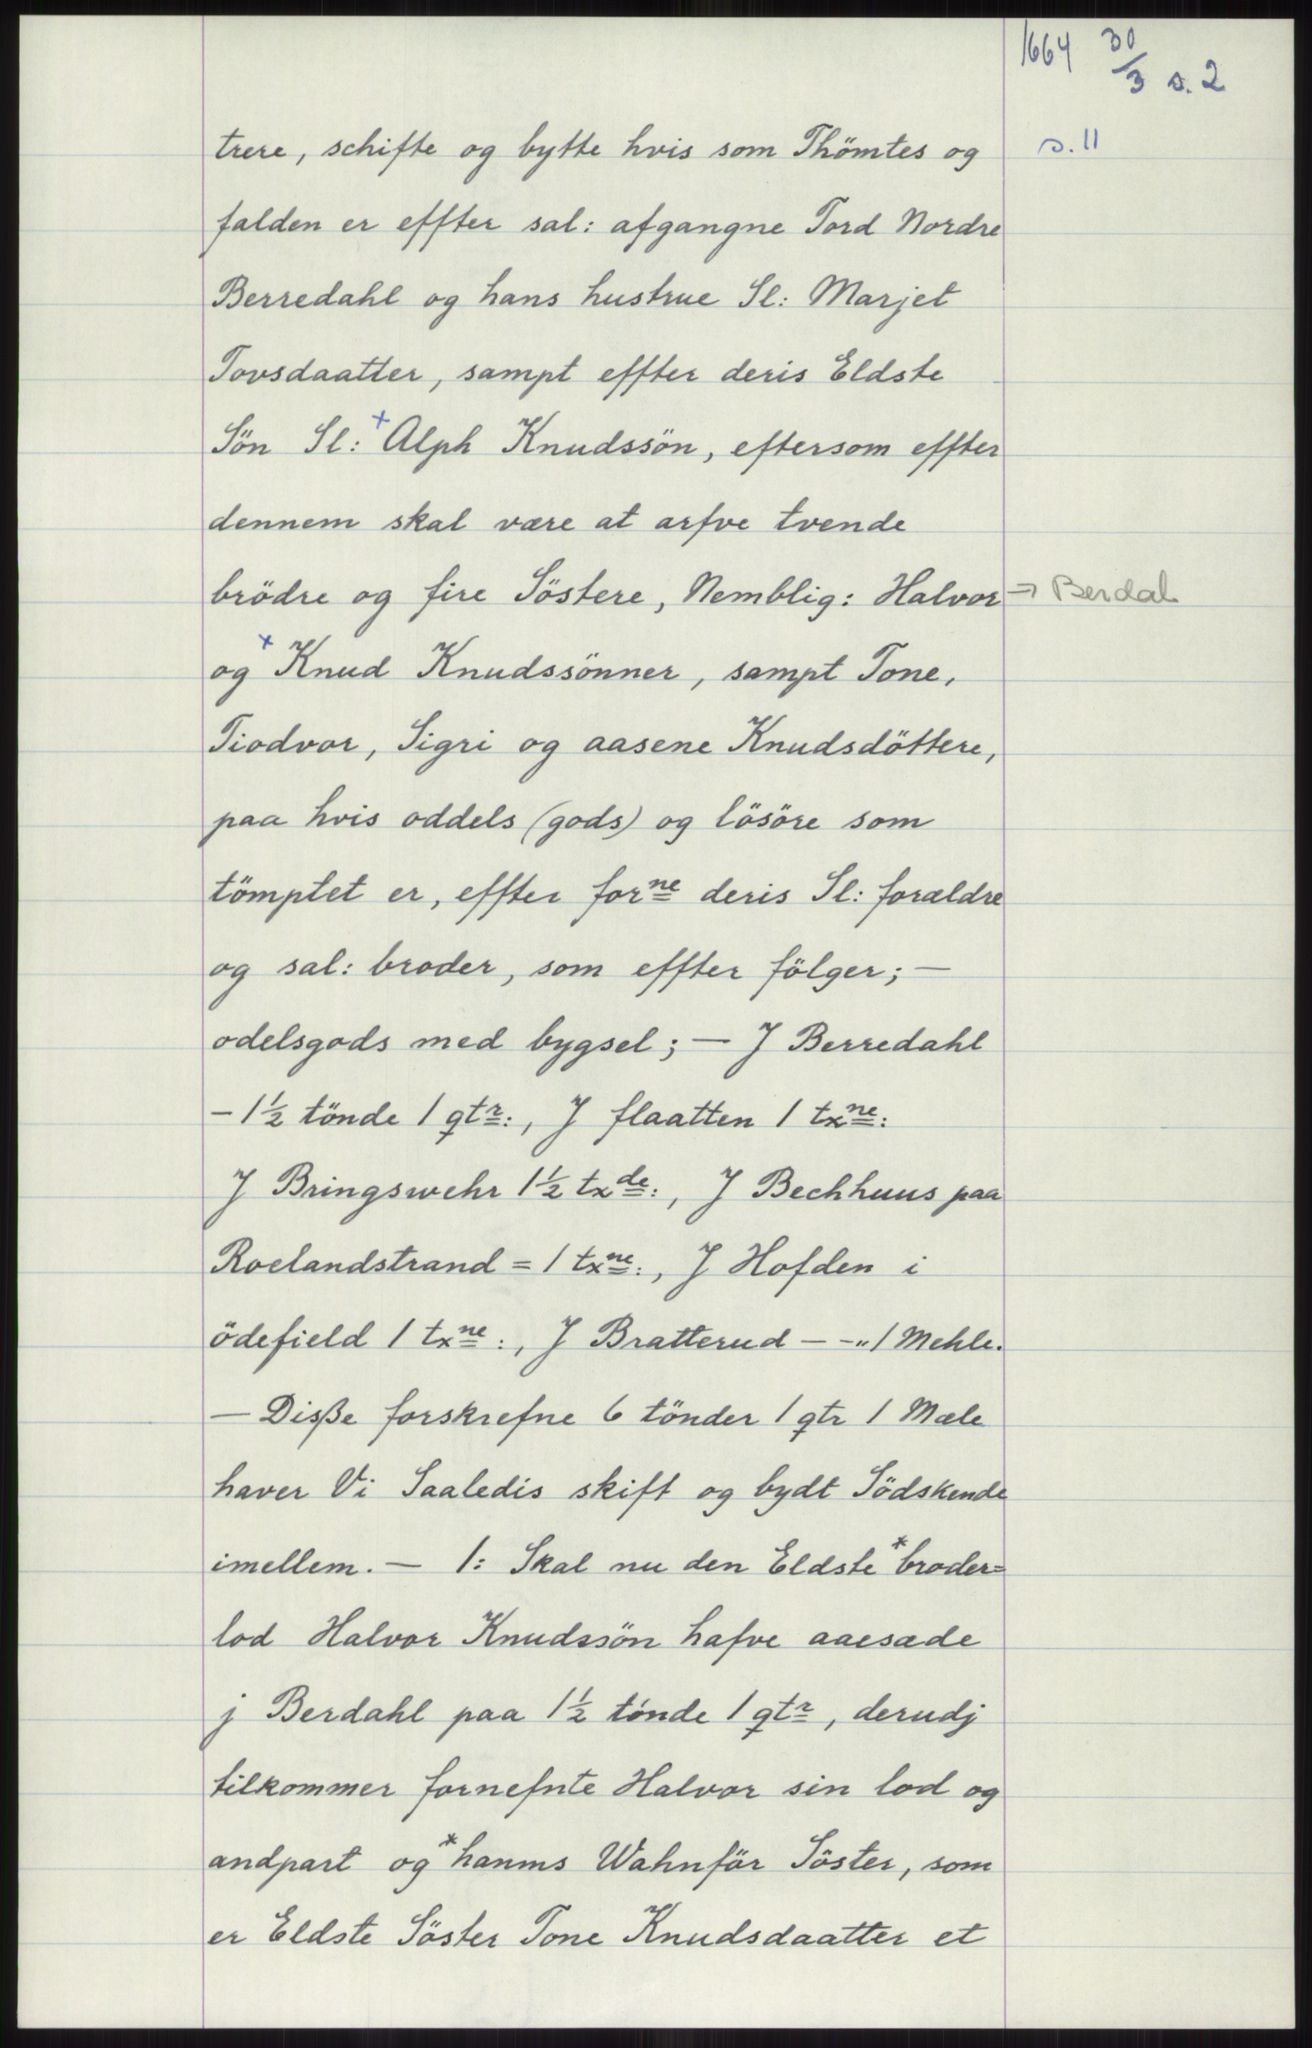 1664 30/3 s. 2
s. 11
trere, schifte og bytte hvis som Thömtes og
falden er effter sal: afgangne Tord Nordre
Berredahl og hans hustrue Sl: Marjet
Tovsdaatter, sampt effter deris Eldste
Sön Sl: + Alph Knudssön, eftersom effter
dennem skal være at arfve tvende
brödre og fire Söstere, Nemblig: Halvor → Berdal
og + Knud Knudssönner, sampt Tone,
Tiodvor, Sigri og aasene Knudsdöttere,
paa hvis oddels (gods) og lösöre som
tömptet er, effter forne deris Sl: forældre
og sal: broder, som effter fölger; —
odelsgods med bygsel; — J Berredahl
- 1½ tönde 1 qtr:, J flaatten 1 txne:
J Bringswehr 1½ txde:, J Bechhuus paa
Roelandstrand = 1 txne:, J Hofden i
ödefield 1 txne:, J Bratterud — -„ 1 Mehle.
— Disße forskrefne 6 tönder 1 qtr 1 Mæle
haver Vi Saaledis skift og bydt Södskende
imellem. — 1: Skal nu den Eldste * broder=
lod Halvor Knudssön hafve aaesæde
j Berdahl paa 1½ tönde 1 qtr, derudj
tilkommer fornefnte Halvor sin lod og
andpart og * hanms Wahnför Söster, som
er Eldste Söster Tone Knudsdaatter et